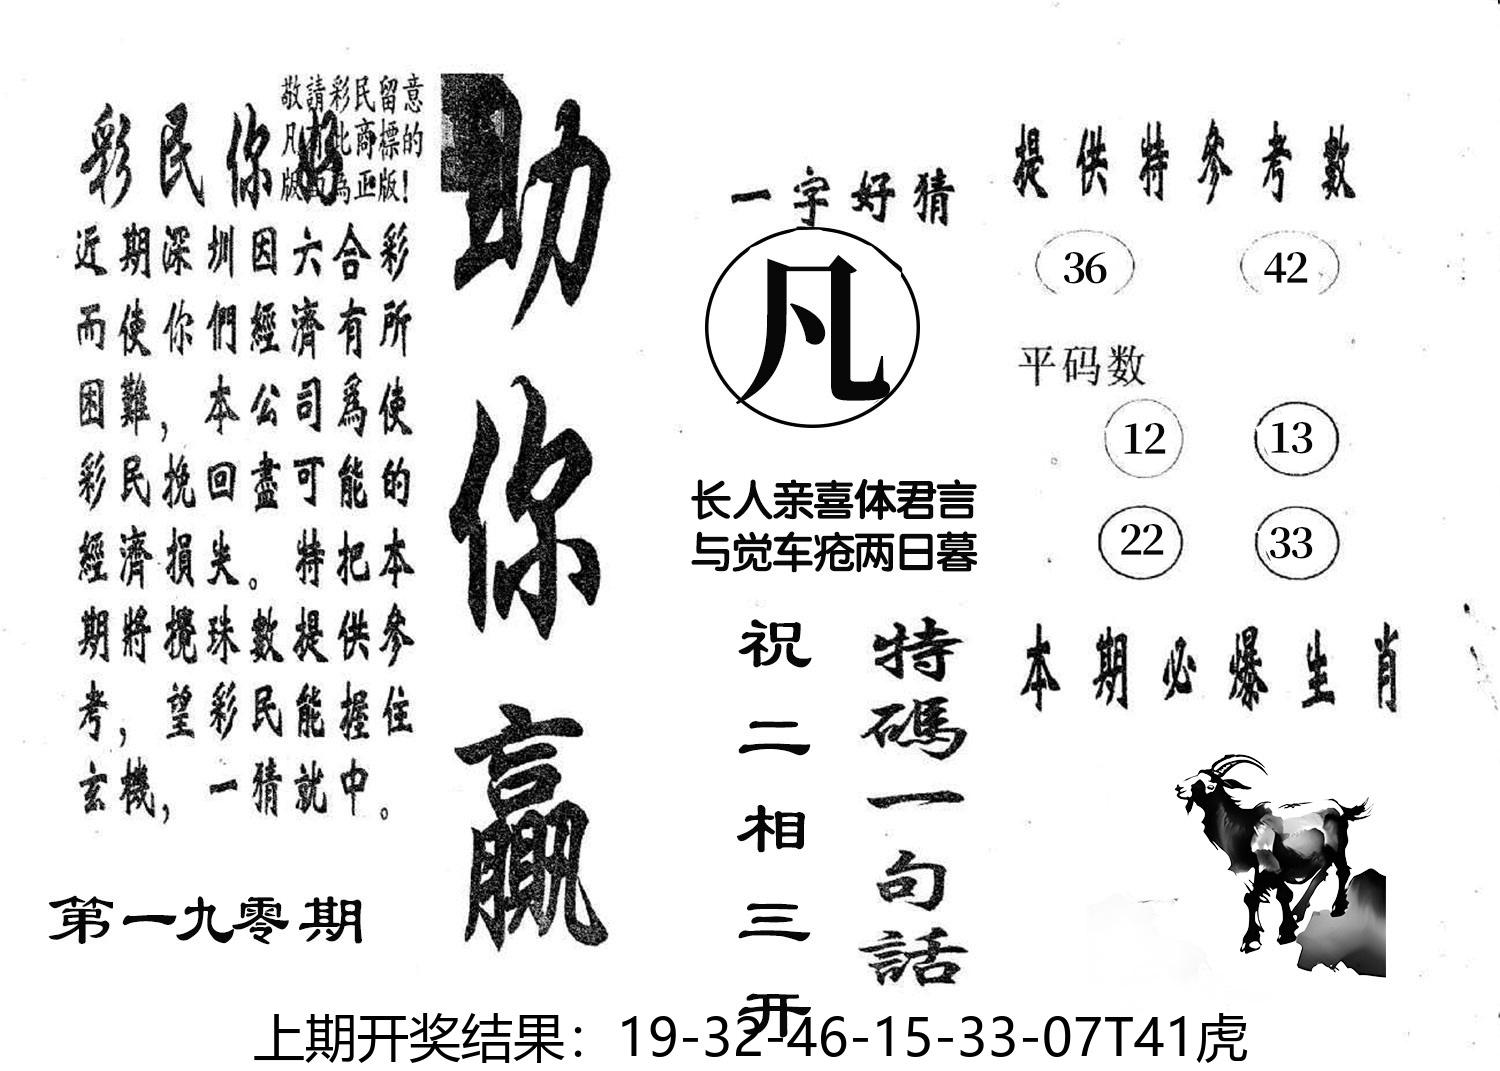 敬請彩民留意
凡有此商標的
版面為正版!
彩民你好
近期深圳因六合彩
而使你們經濟有所
困難，本公司爲使
彩民挽回盡可能的
經濟損失。特把本
期將攪珠數提供參
考，望彩民能握住
玄機，一猜就中。
第一九零期
助你贏
一字好猜
凡
长人亲喜体君言
与觉车疮两日暮
特碼一句話
祝二相三开
提供特參考數
36 42
平码数
12 13
22 33
本期必爆生肖
上期开奖结果：19-32-46-15-33-07T41虎